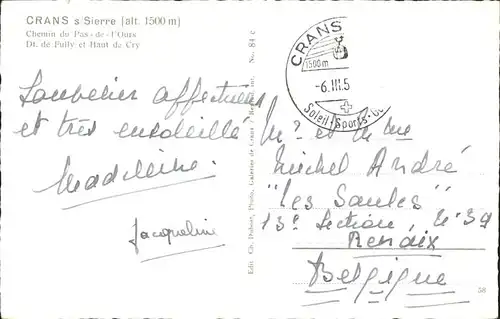 CRANS s/Sierre (alt. 1500 m)
Chemin du Pas-de-l'Ours
Dt. de Fully et Haut de Cry
affectueux
et très ensoleillé
Madeleine.
Jacqueline
Edit. Ch. Dubost, Photo, Galeries de Crans No. 84 c
CRANS
1500 m
-6.III.5
Soleil-Sports
Mr et Mme
Michel André
"Les Saules"
13e Section, No 39
Renaix
Belgique
58